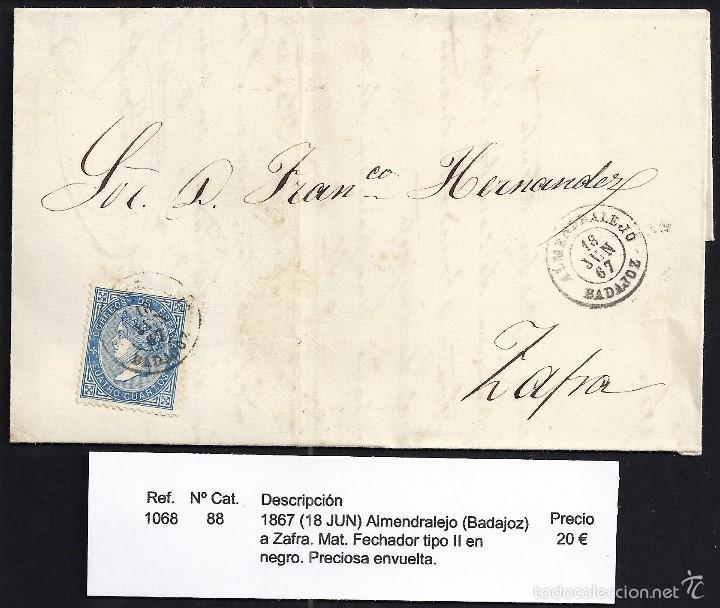 Sor. D. Franco Hernandez
ALMENDRALEJO
18
JUN
67
BADAJOZ
CORREOS DE ESPAÑA
BADAJOZ
CUATRO CUARTOS
Zafra
Ref. Nº Cat. Descripción Precio
1068 88 1867 (18 JUN) Almendralejo (Badajoz) 20 €
a Zafra. Mat. Fechador tipo II en
negro. Preciosa envuelta.
todocoleccion.net